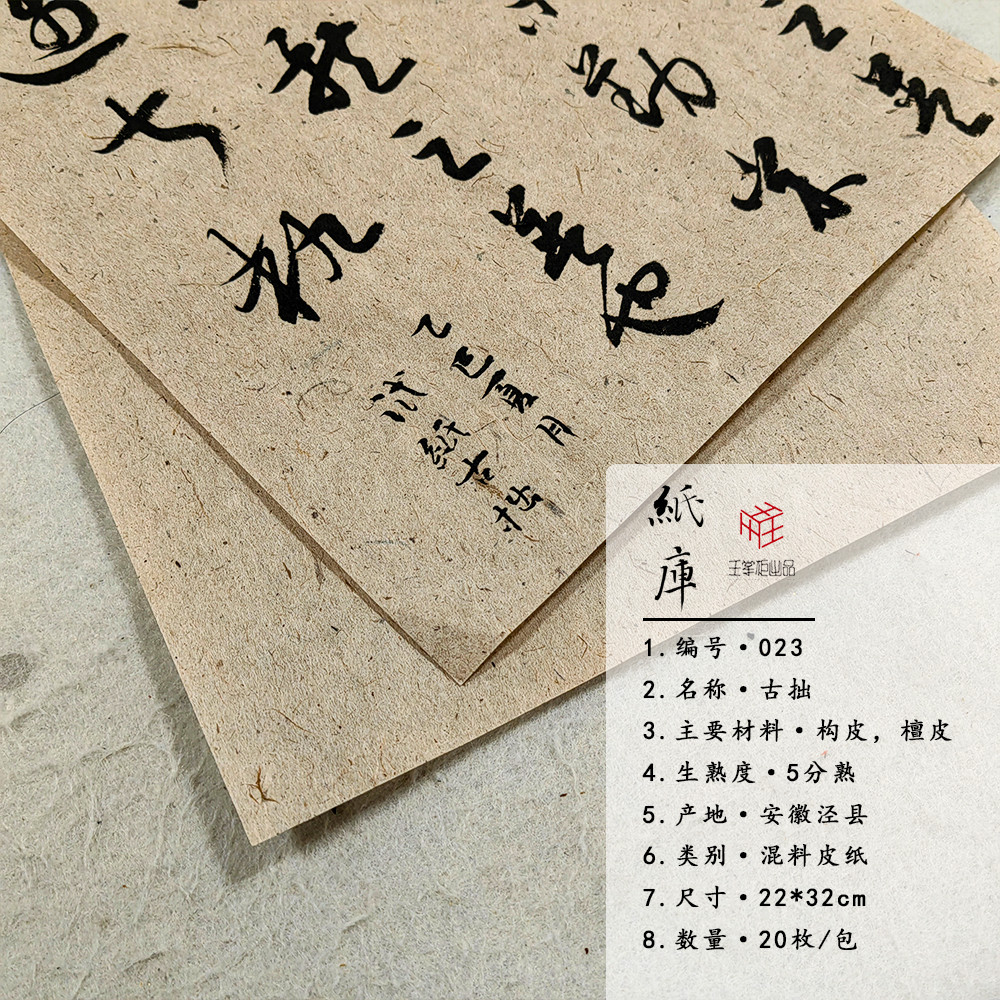 乙巳夏月
試紙古拙
紙庫
王掌柜出品
1.编号·023
2.名称·古拙
3.主要材料·构皮，檀皮
4.生熟度·5分熟
5.产地·安徽泾县
6.类别·混料皮纸
7.尺寸·22*32cm
8.数量·20枚/包